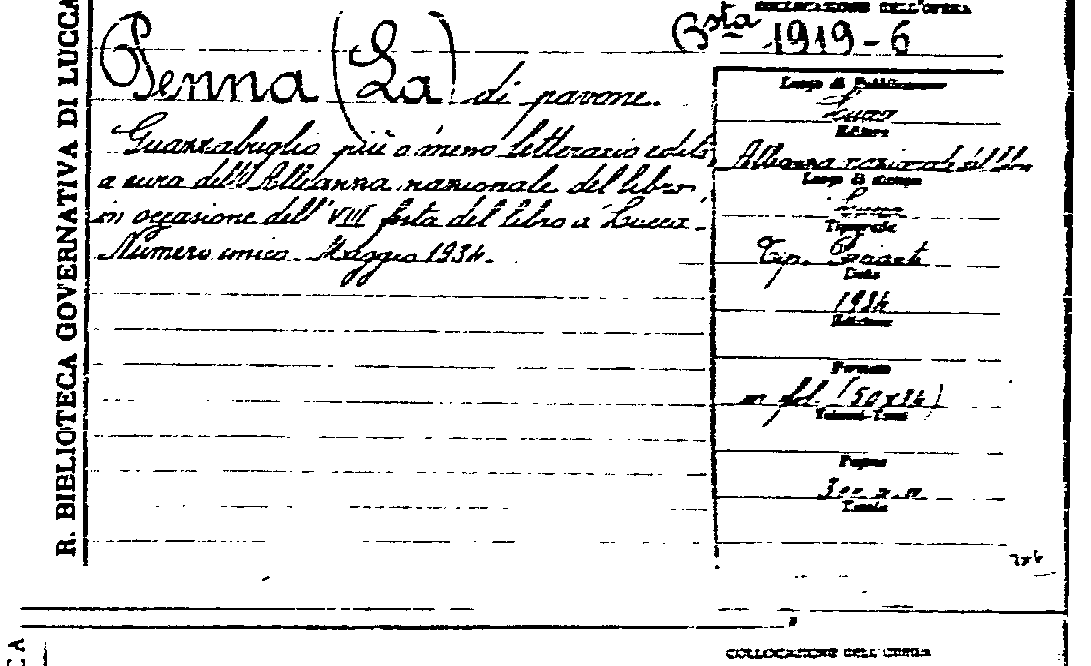 COLLOCAZIONE DELL'OPERA
Bsta 1919-6
R. BIBLIOTECA GOVERNATIVA DI LUCCA
Penna (La) di pavone.
Guazzabuglio più o meno letterario edito
a cura dell'Alleanza nazionale del libro,
in occasione dell'VIII festa del libro a Lucca.
Numero unico. Maggio 1934.
Luogo di Pubblicazione
Lucca
Editore
Alleanza nazionale del libro
Luogo di stampa
Lucca
Tipografia
Tip.
Data
1934
Edizione
Formato
in fol (50x34)
Pagine
Tavole
COLLOCAZIONE DELL'OPERA
CA